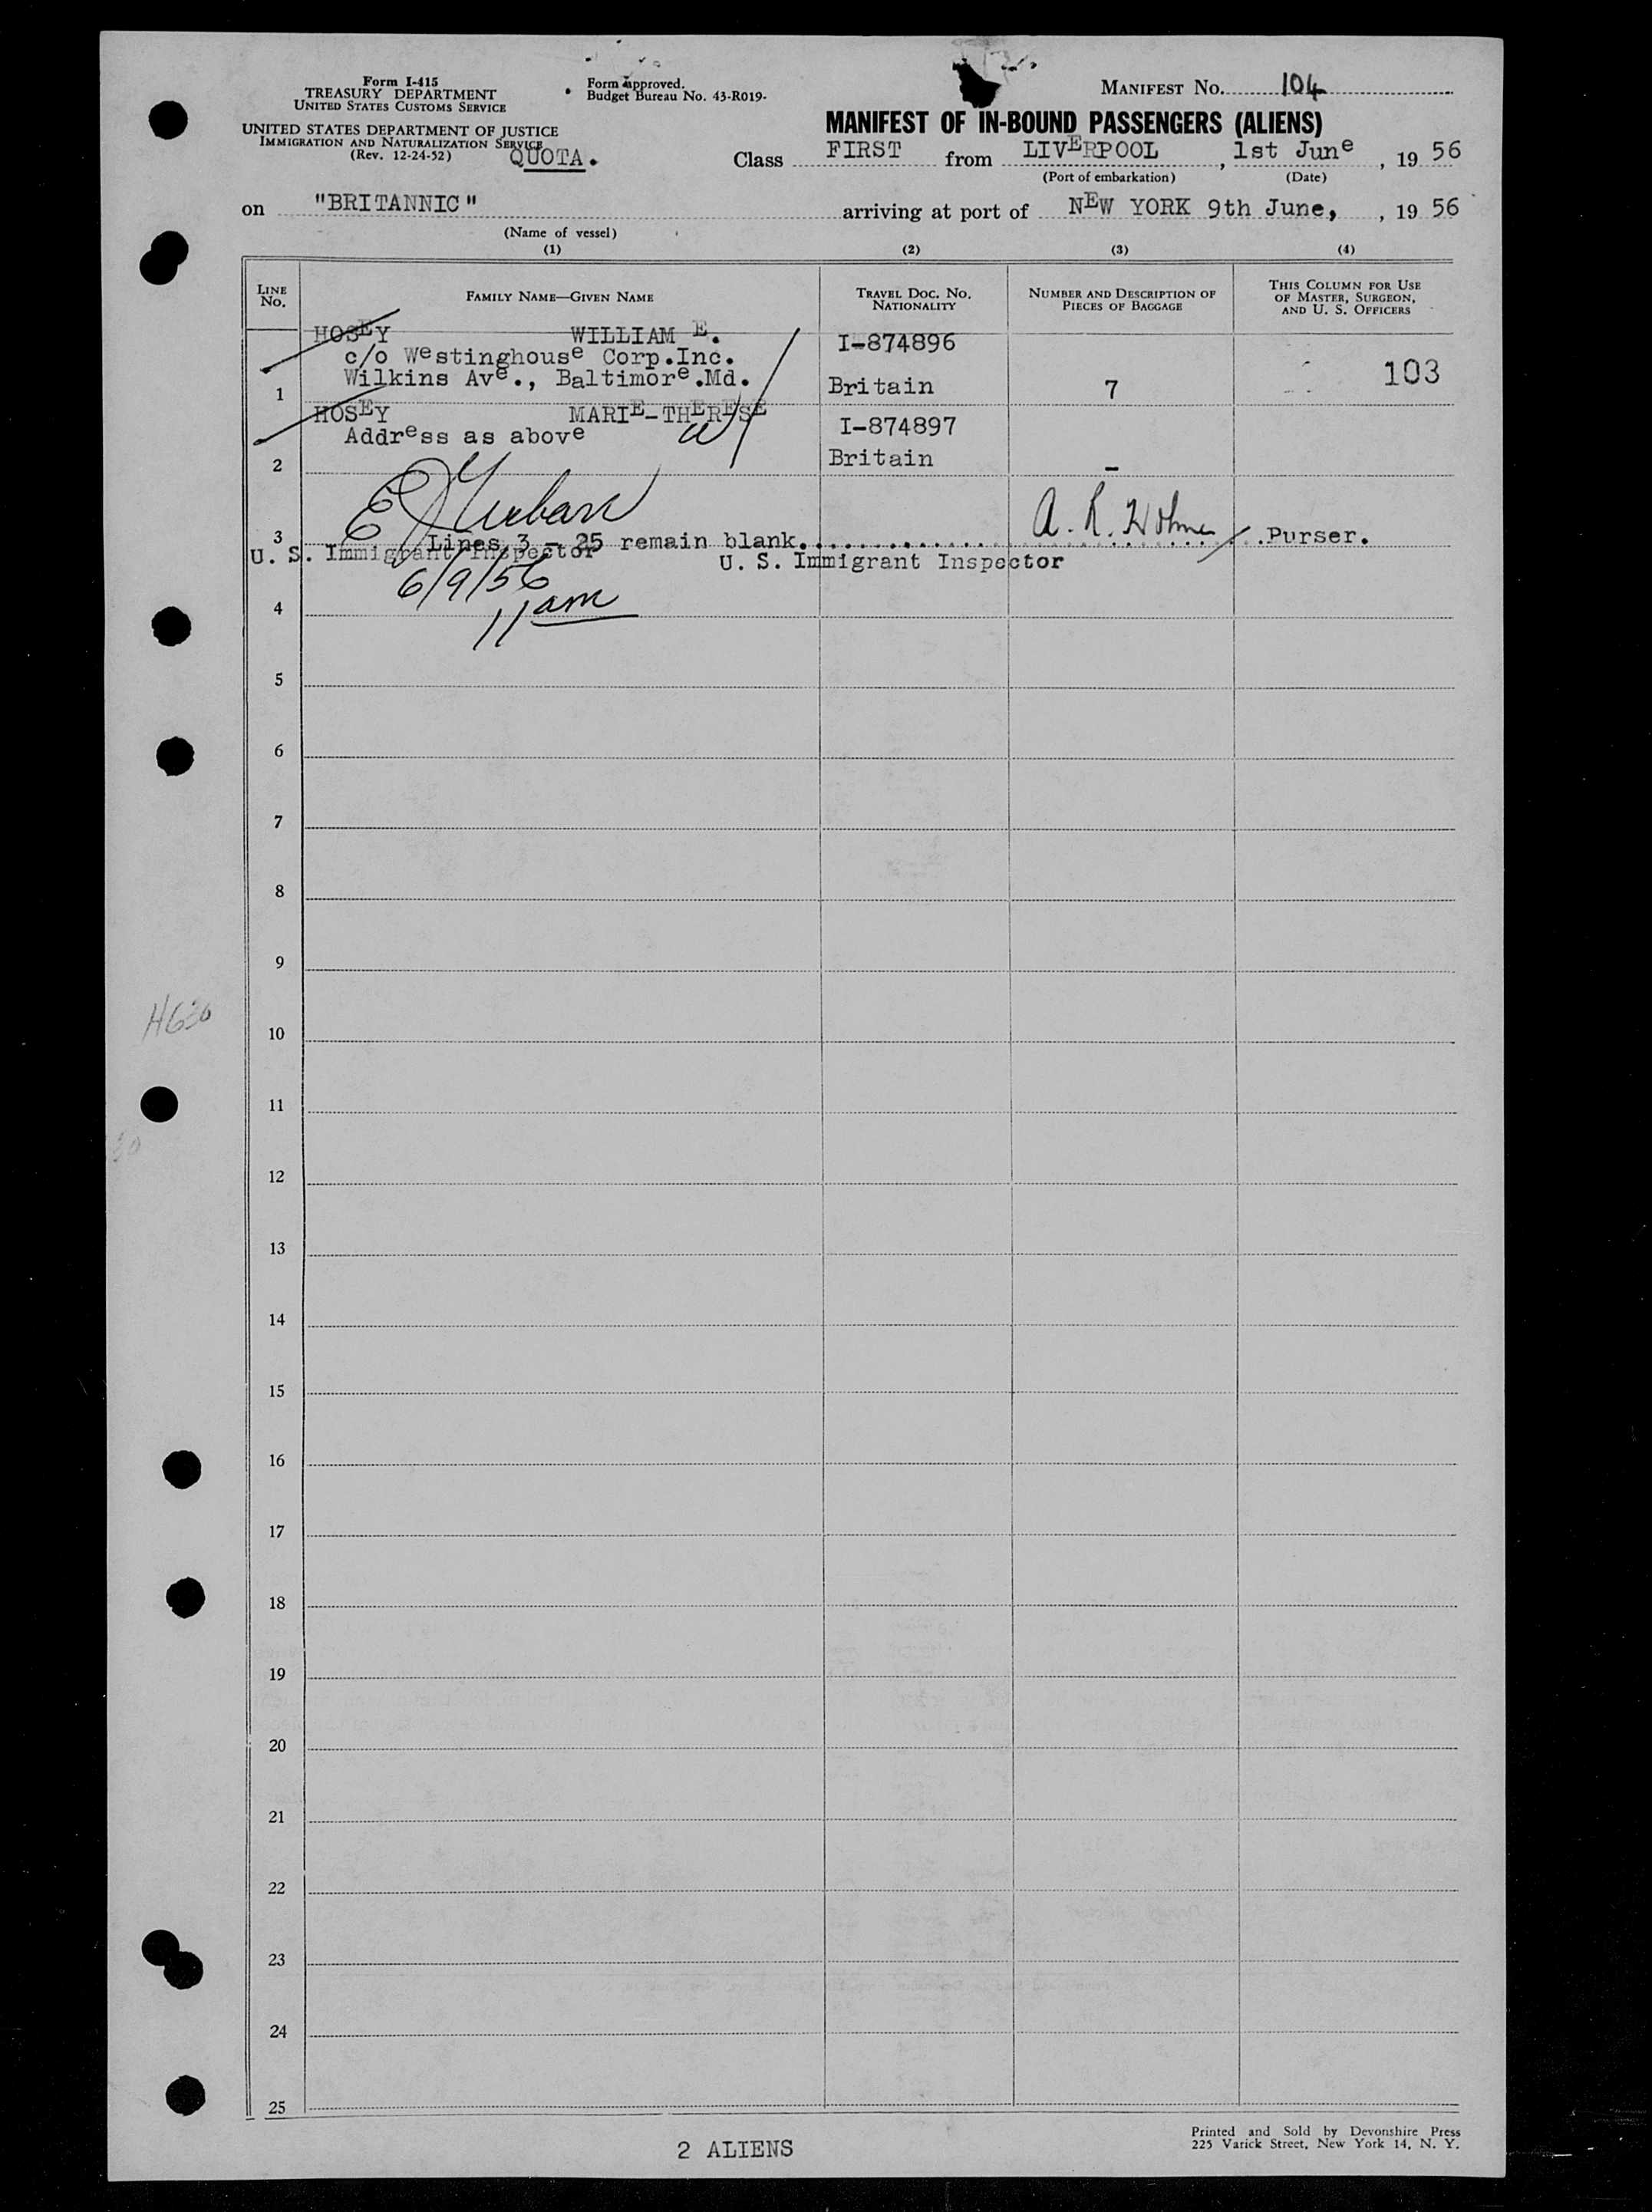 Form I-415
TREASURY DEPARTMENT
UNITED STATES CUSTOMS SERVICE
Form approved.
Budget Bureau No. 43-R019-
MANIFEST No. 104
UNITED STATES DEPARTMENT OF JUSTICE
IMMIGRATION AND NATURALIZATION SERVICE
(Rev. 12-24-52)
QUOTA.
MANIFEST OF IN-BOUND PASSENGERS (ALIENS)
Class FIRST from LIVERPOOL, 1st June, 19 56
(Port of embarkation) (Date)
on "BRITANNIC" arriving at port of NEW YORK 9th June, , 19 56
(Name of vessel)
(1) (2) (3) (4)
LINE NO.
FAMILY NAME—GIVEN NAME
TRAVEL DOC. NO.
NATIONALITY
NUMBER AND DESCRIPTION OF
PIECES OF BAGGAGE
THIS COLUMN FOR USE
OF MASTER, SURGEON,
AND U. S. OFFICERS
HOSEY WILLIAM E. I-874896
c/o Westinghouse Corp.Inc.
Wilkins Ave., Baltimore.Md. 103
1 Britain 7
HOSEY MARIE-THERESE I-874897
Address as above
2 Britain -
3 Lines 3 - 25 remain blank. A. R. Purser.
U. S. Immigrant Inspector U. S. Immigrant Inspector
6/9/56
4 11am
5
6
7
8
9
10
H630
11
12
13
14
15
16
17
18
19
20
21
22
23
24
25
2 ALIENS
Printed and Sold by Devonshire Press
225 Varick Street, New York 14, N. Y.